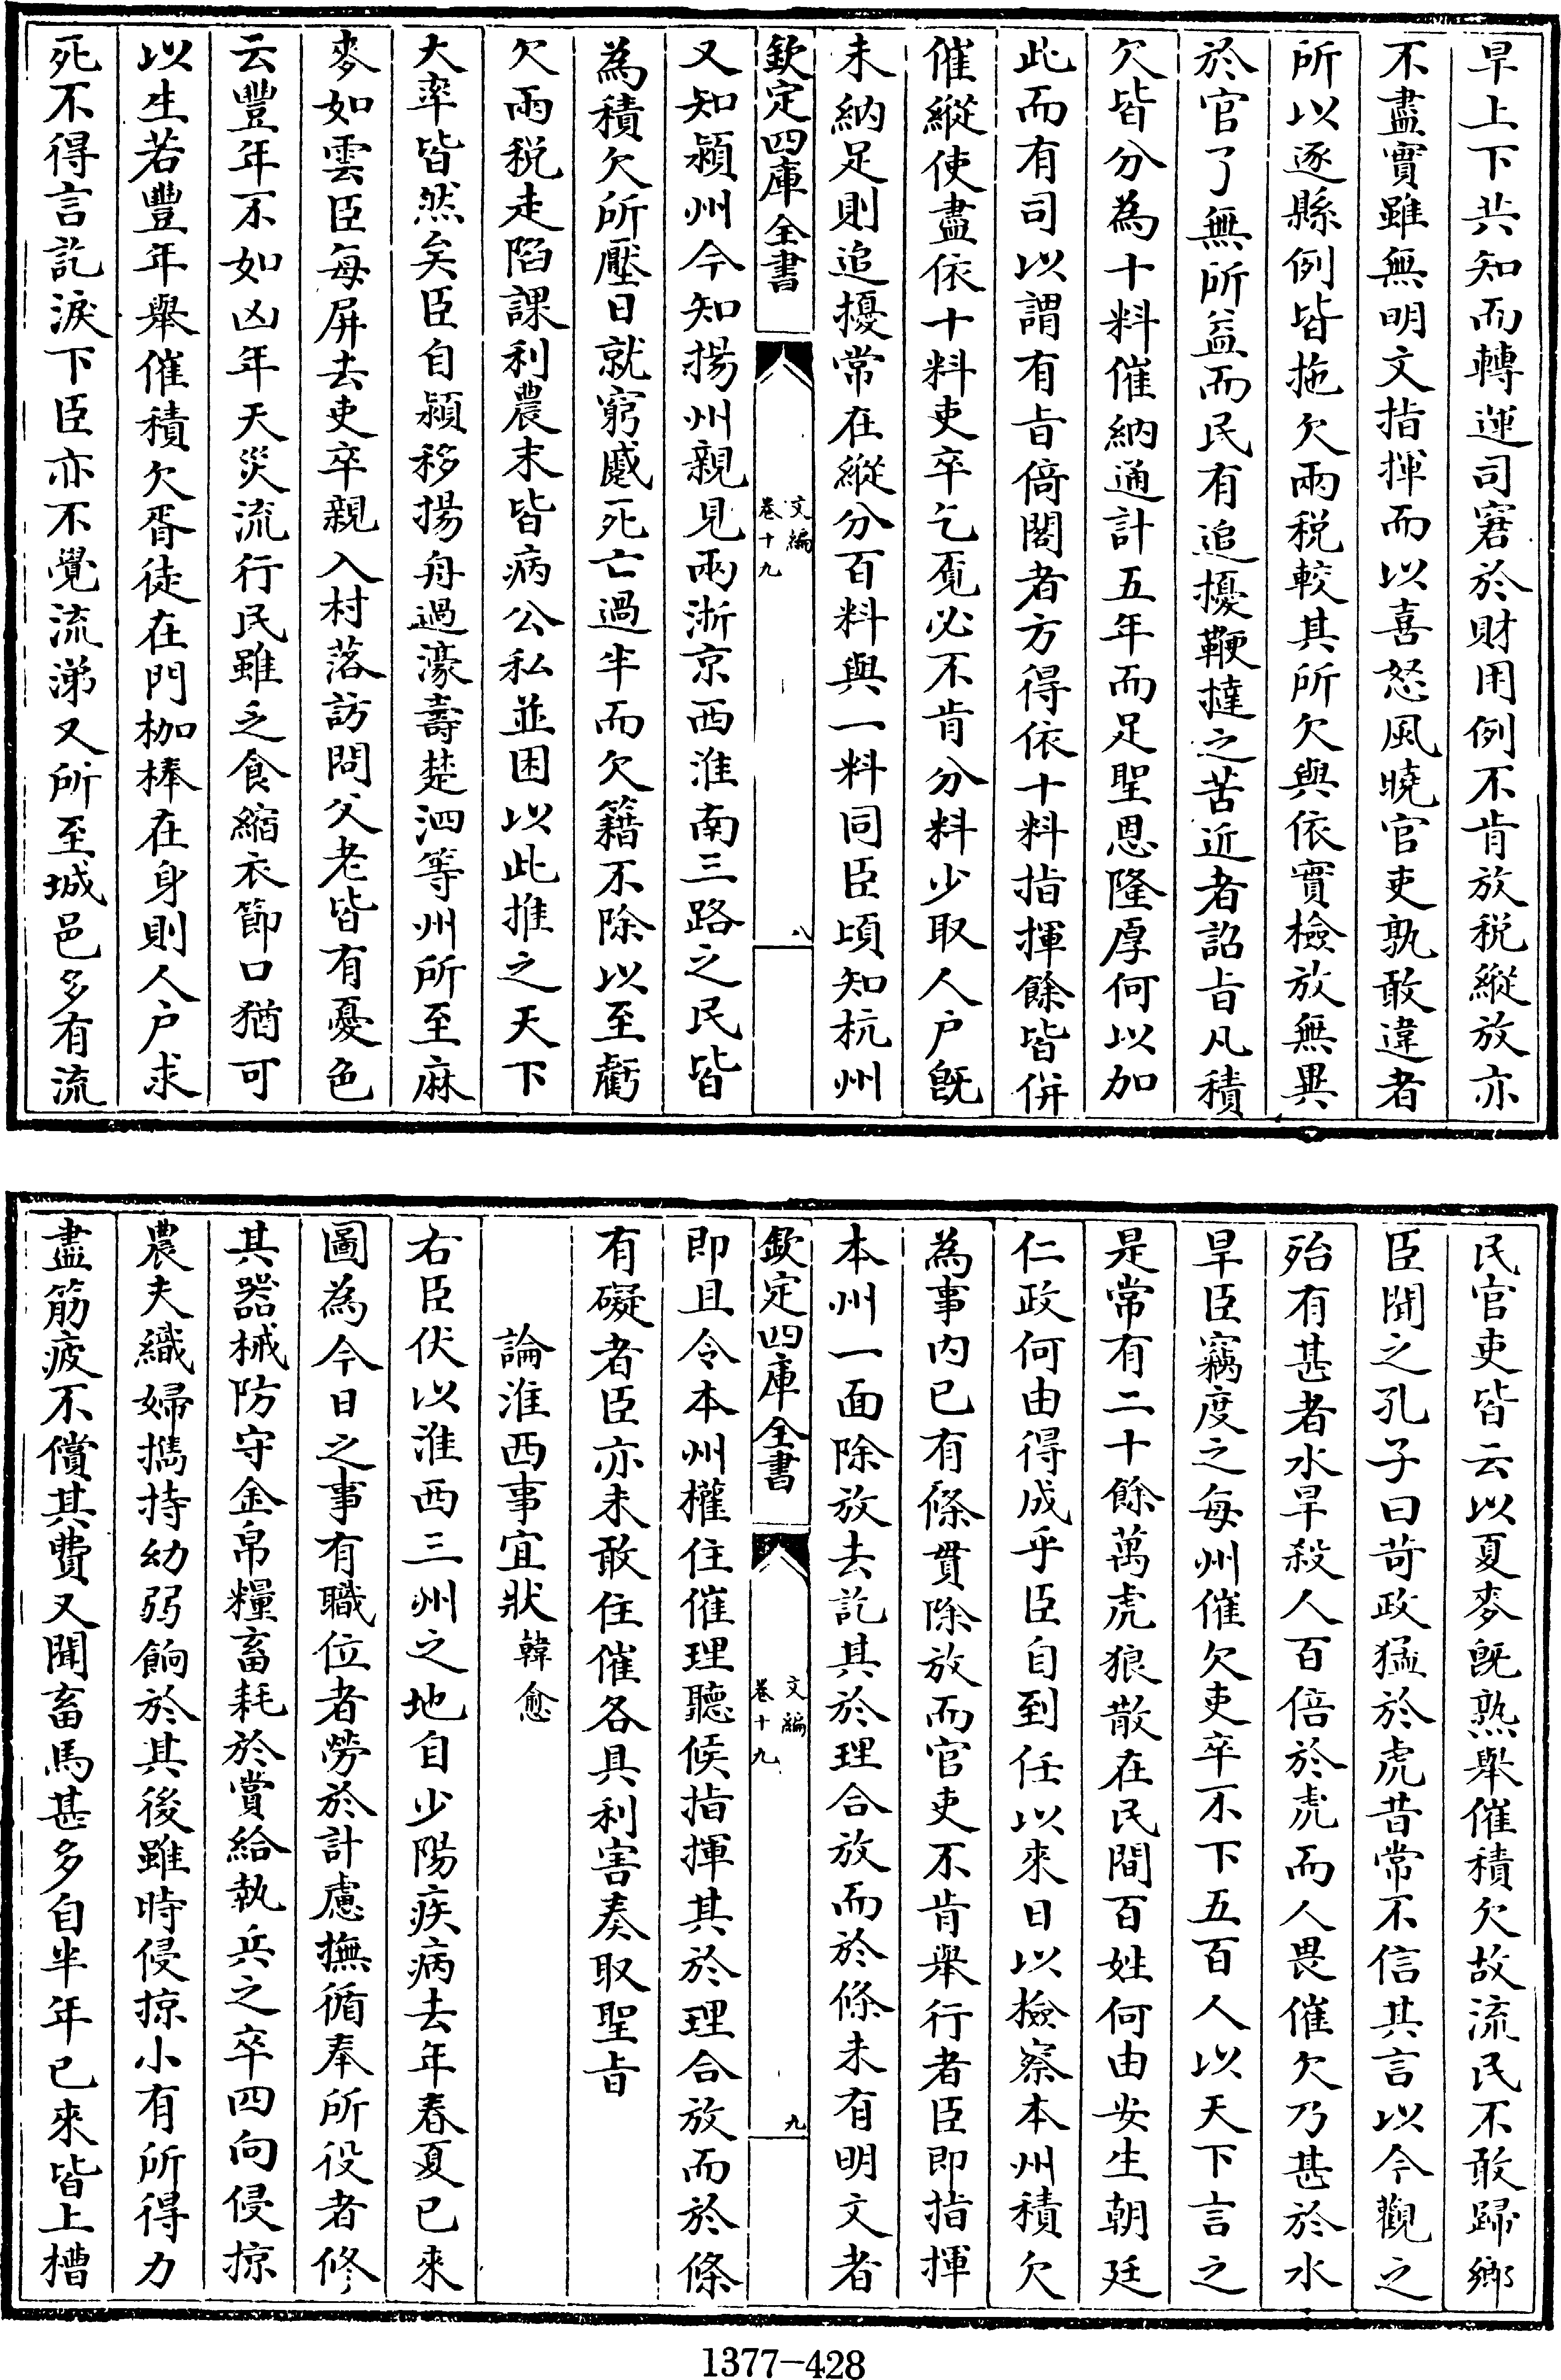 旱上下共知而轉運司窘於財用例不肯放税縱放亦
不盡實雖無明文指揮而以喜怒風曉官吏孰敢違者
所以逐縣例皆拖欠兩税較其所欠與依實檢放無異
於官了無所益而民有追擾鞭撻之苦近者詔㫖凡積
欠皆分為十料催納通計五年而足聖恩隆厚何以加
此而有司以謂有㫖倚閣者方得依十料指揮餘皆併
催縱使盡依十料吏卒乞覔必不肯分料少取人户既
未納足則追擾常在縱分百料與一料同臣頃知杭州
欽定四庫全書
文編
卷十九
八
又知潁州今知揚州親見兩浙京西淮南三路之民皆
為積欠所壓日就窮蹙死亡過半而欠籍不除以至虧
欠兩税走陷課利農末皆病公私並困以此推之天下
大率皆然矣臣自潁移揚舟過濠壽楚泗等州所至麻
麥如雲臣每屏去吏卒親入村落訪問父老皆有憂色
云豐年不如凶年天災流行民雖乏食縮衣節口猶可
以生若豐年舉催積欠胥徒在門枷棒在身則人户求
死不得言訖淚下臣亦不覺流涕又所至城邑多有流
民官吏皆云以夏麥既熟舉催積欠故流民不敢歸鄉
臣聞之孔子曰苛政猛於虎昔常不信其言以今觀之
殆有甚者水旱殺人百倍於虎而人畏催欠乃甚於水
旱臣竊度之每州催欠吏卒不下五百人以天下言之
是常有二十餘萬虎狼散在民間百姓何由安生朝廷
仁政何由得成乎臣自到任以來日以檢察本州積欠
為事内已有條貫除放而官吏不肯舉行者臣即指揮
本州一面除放去訖其於理合放而於條未有明文者
欽定四庫全書
文編
卷十九
九
即且令本州權住催理聽候指揮其於理合放而於條
有礙者臣亦未敢住催各具利害奏取聖㫖
論淮西事宜狀 韓愈
右臣伏以淮西三州之地自少陽疾病去年春夏已來
圖為今日之事有職位者勞於計慮撫循奉所役者修
其器械防守金帛糧畜耗於賞給執兵之卒四向侵掠
農夫織婦攜持幼弱餉於其後雖時侵掠小有所得力
盡筋疲不償其費又聞畜馬甚多自半年已來皆上槽
1377-428